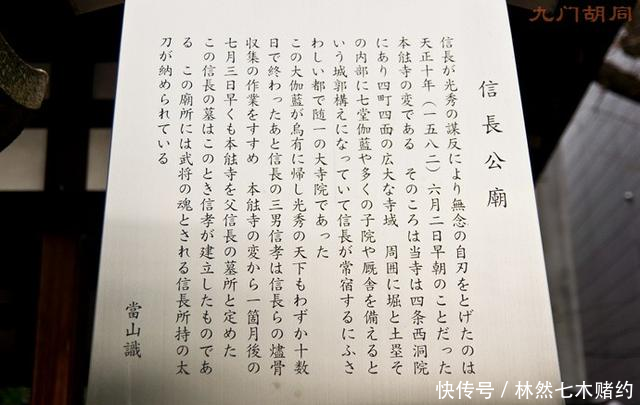 九门胡同
信長公廟
信長が光秀の謀反により無念の自刃をとげたのは
天正十年（一五八二）六月二日早朝のことだった
本能寺の変である　そのころは当寺は四条西洞院
にあり四町四面の広大な寺域　周囲に堀と土塁そ
の内部に七堂伽藍や多くの子院や厩舎を備えると
いう城郭構えになっていて信長が常宿するにふさ
わしい都で随一の大寺院であった
この大伽藍が烏有に帰し光秀の天下もわずか十数
日で終わったあと信長の三男信孝は信長らの燼骨
収集の作業をすすめ　本能寺の変から一箇月後の
七月三日早くも本能寺を父信長の墓所と定めた
この信長の墓はこのとき信孝が建立したものであ
る　この廟所には武将の魂とされる信長所持の太
刀が納められている
當山識
快传号/林然七木赌约